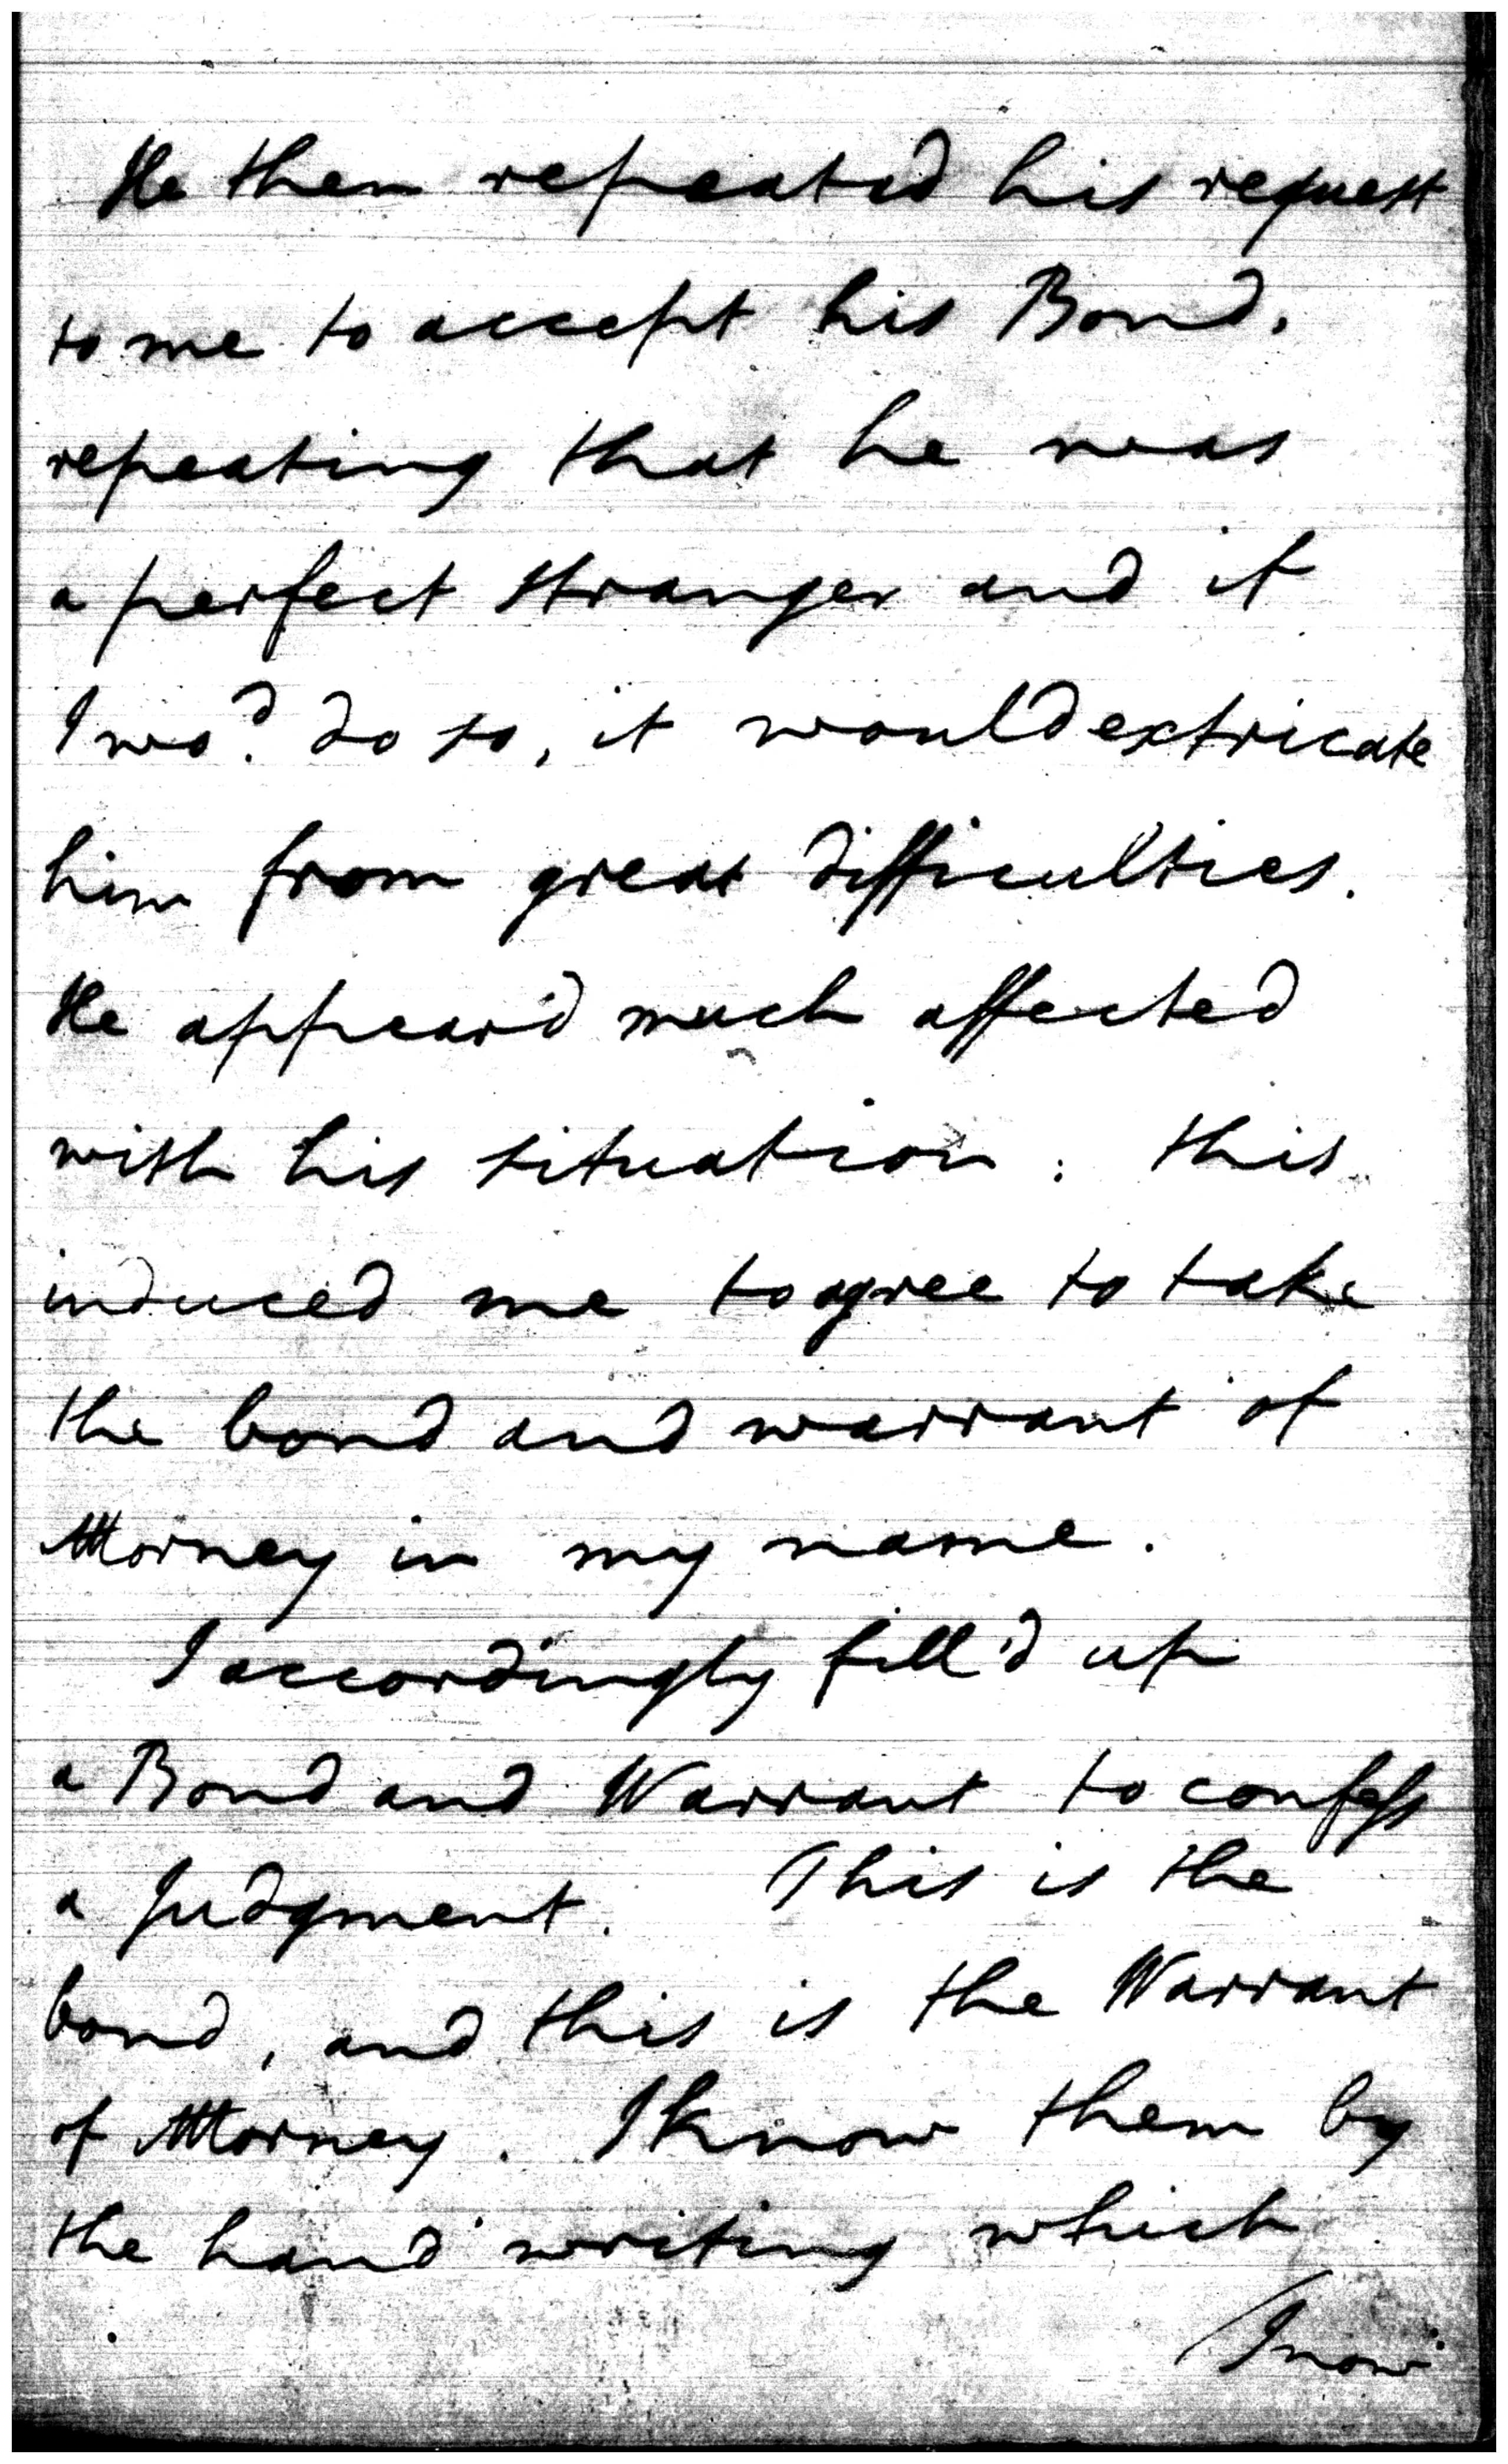 He then repeated his request
to me to accept his Bond,
repeating that he was
a perfect stranger and if
I wo.d do so, it would extricate
him from great difficulties.
He appear'd much affected
with his situation: this
induced me to agree to take
the bond and warrant of
Attorney in my name.
I accordingly fill'd up
a Bond and Warrant to confess
a Judgment. This is the
bond, and this is the Warrant
of Attorney. I know them by
the hand writing which
I now